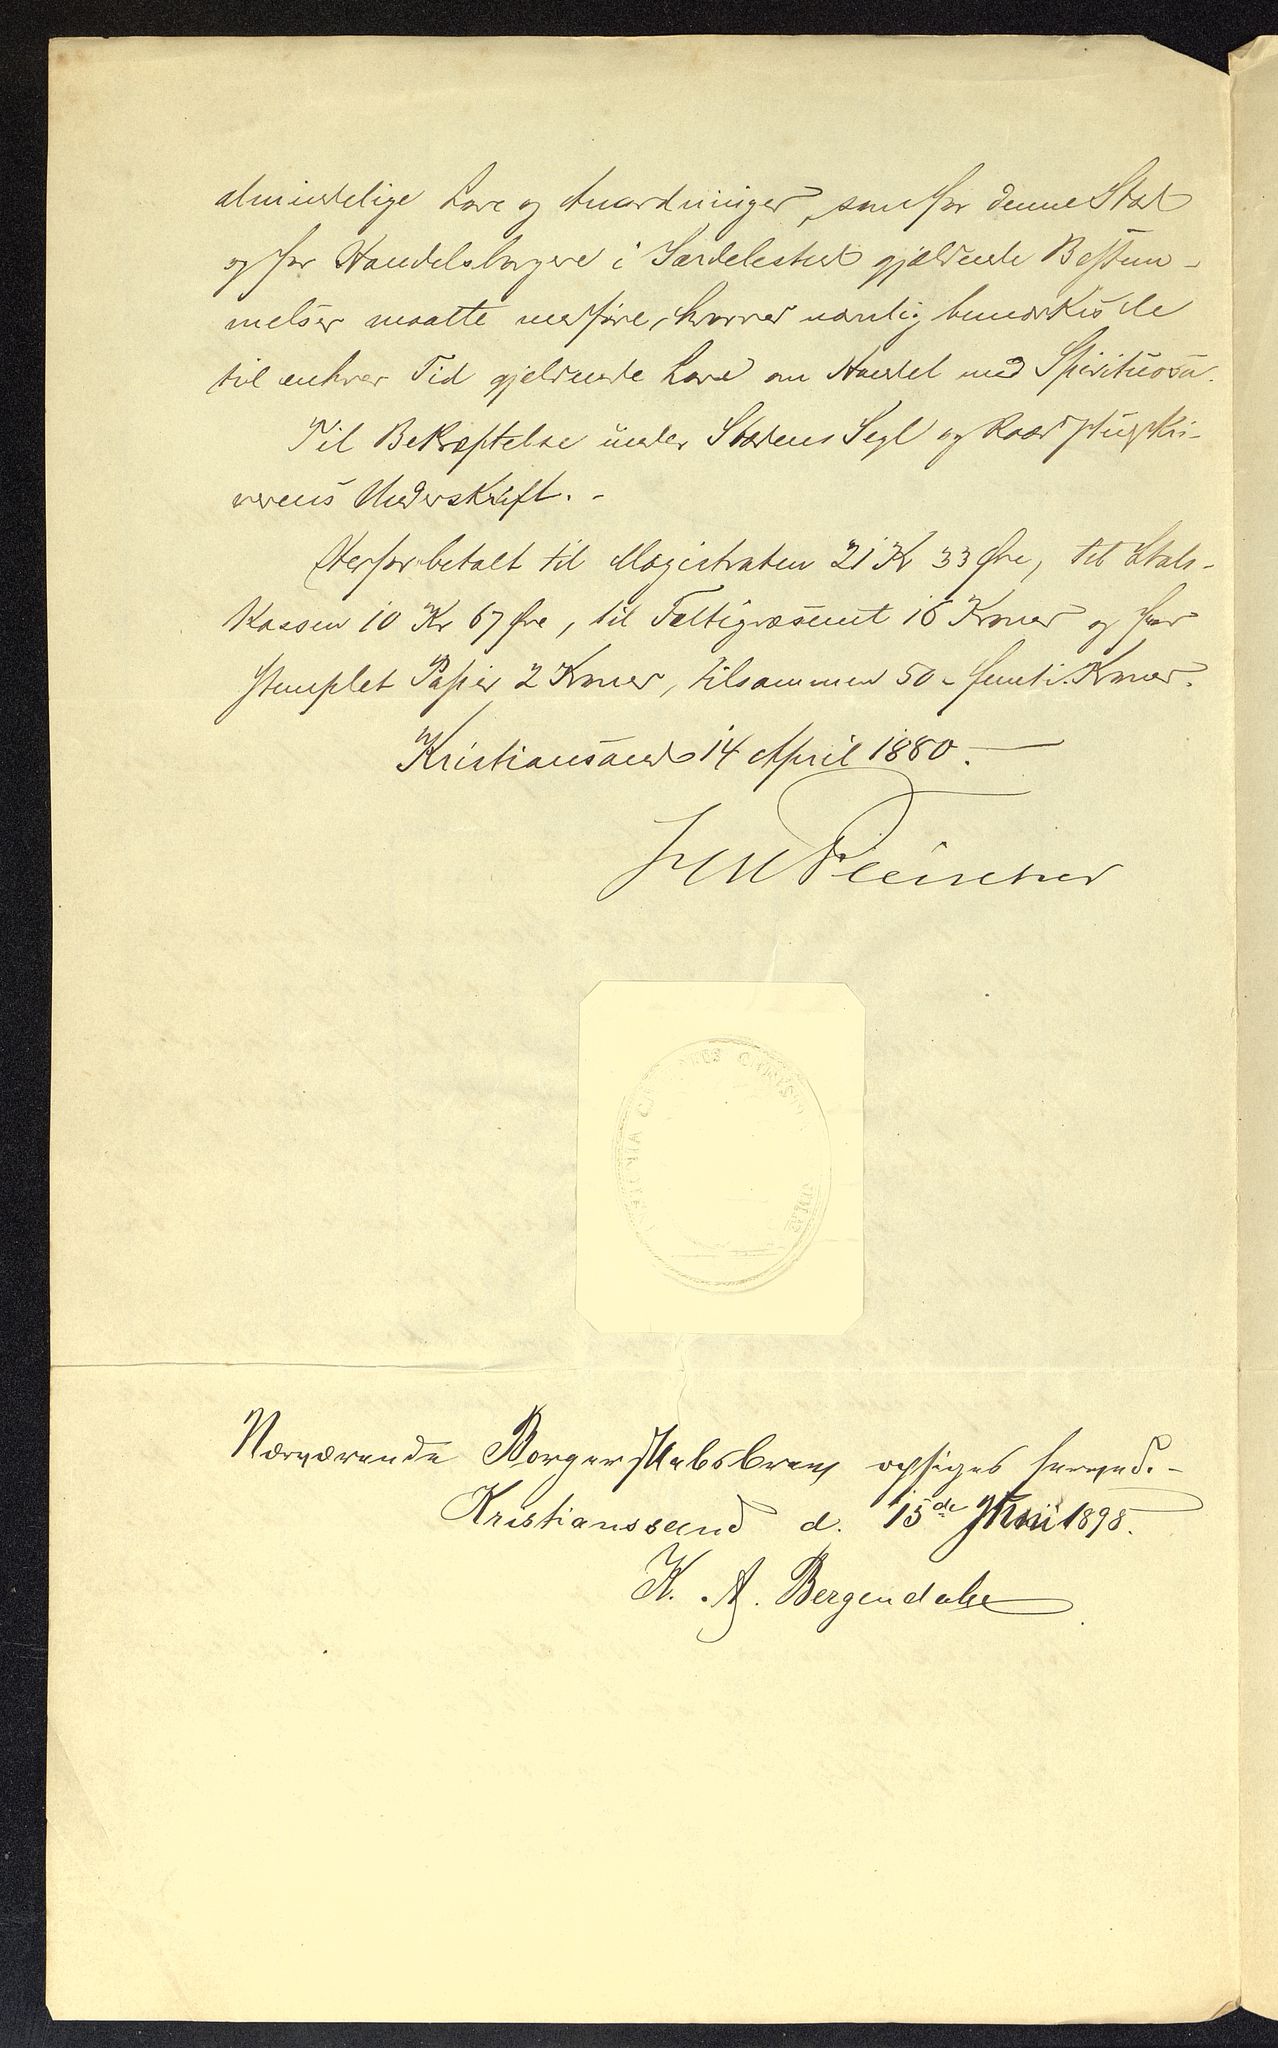 almindelige Love og Anordninger, som for denne Stad
og for Handelsborgere i Særdeleshed gjældende Bestem-
melser maatte medføre, hvorved navnlig bemærkes de
til enhver Tid gjeldende Love om Handel med Spirituosa.
Til Bekræftelse under Stadens Segl og Raadstuskri-
verens Underskrift. -
Herfor betalt til Magistraten 21 Kr 33 Øre, til Stads-
kassen 10 Kr 67 Øre, til Fattigvæsenet 16 Kroner og for
stemplet Papir 2 Kroner, tilsammen 50 - femti Kroner.
Kristianssand 14 April 1880. -
Fleischer
CHRISTI
Nærværende Borgerskabsbrev opsiges herved. -
Kristianssand d. 15de Juni 1898.
K. A. Bergendahl